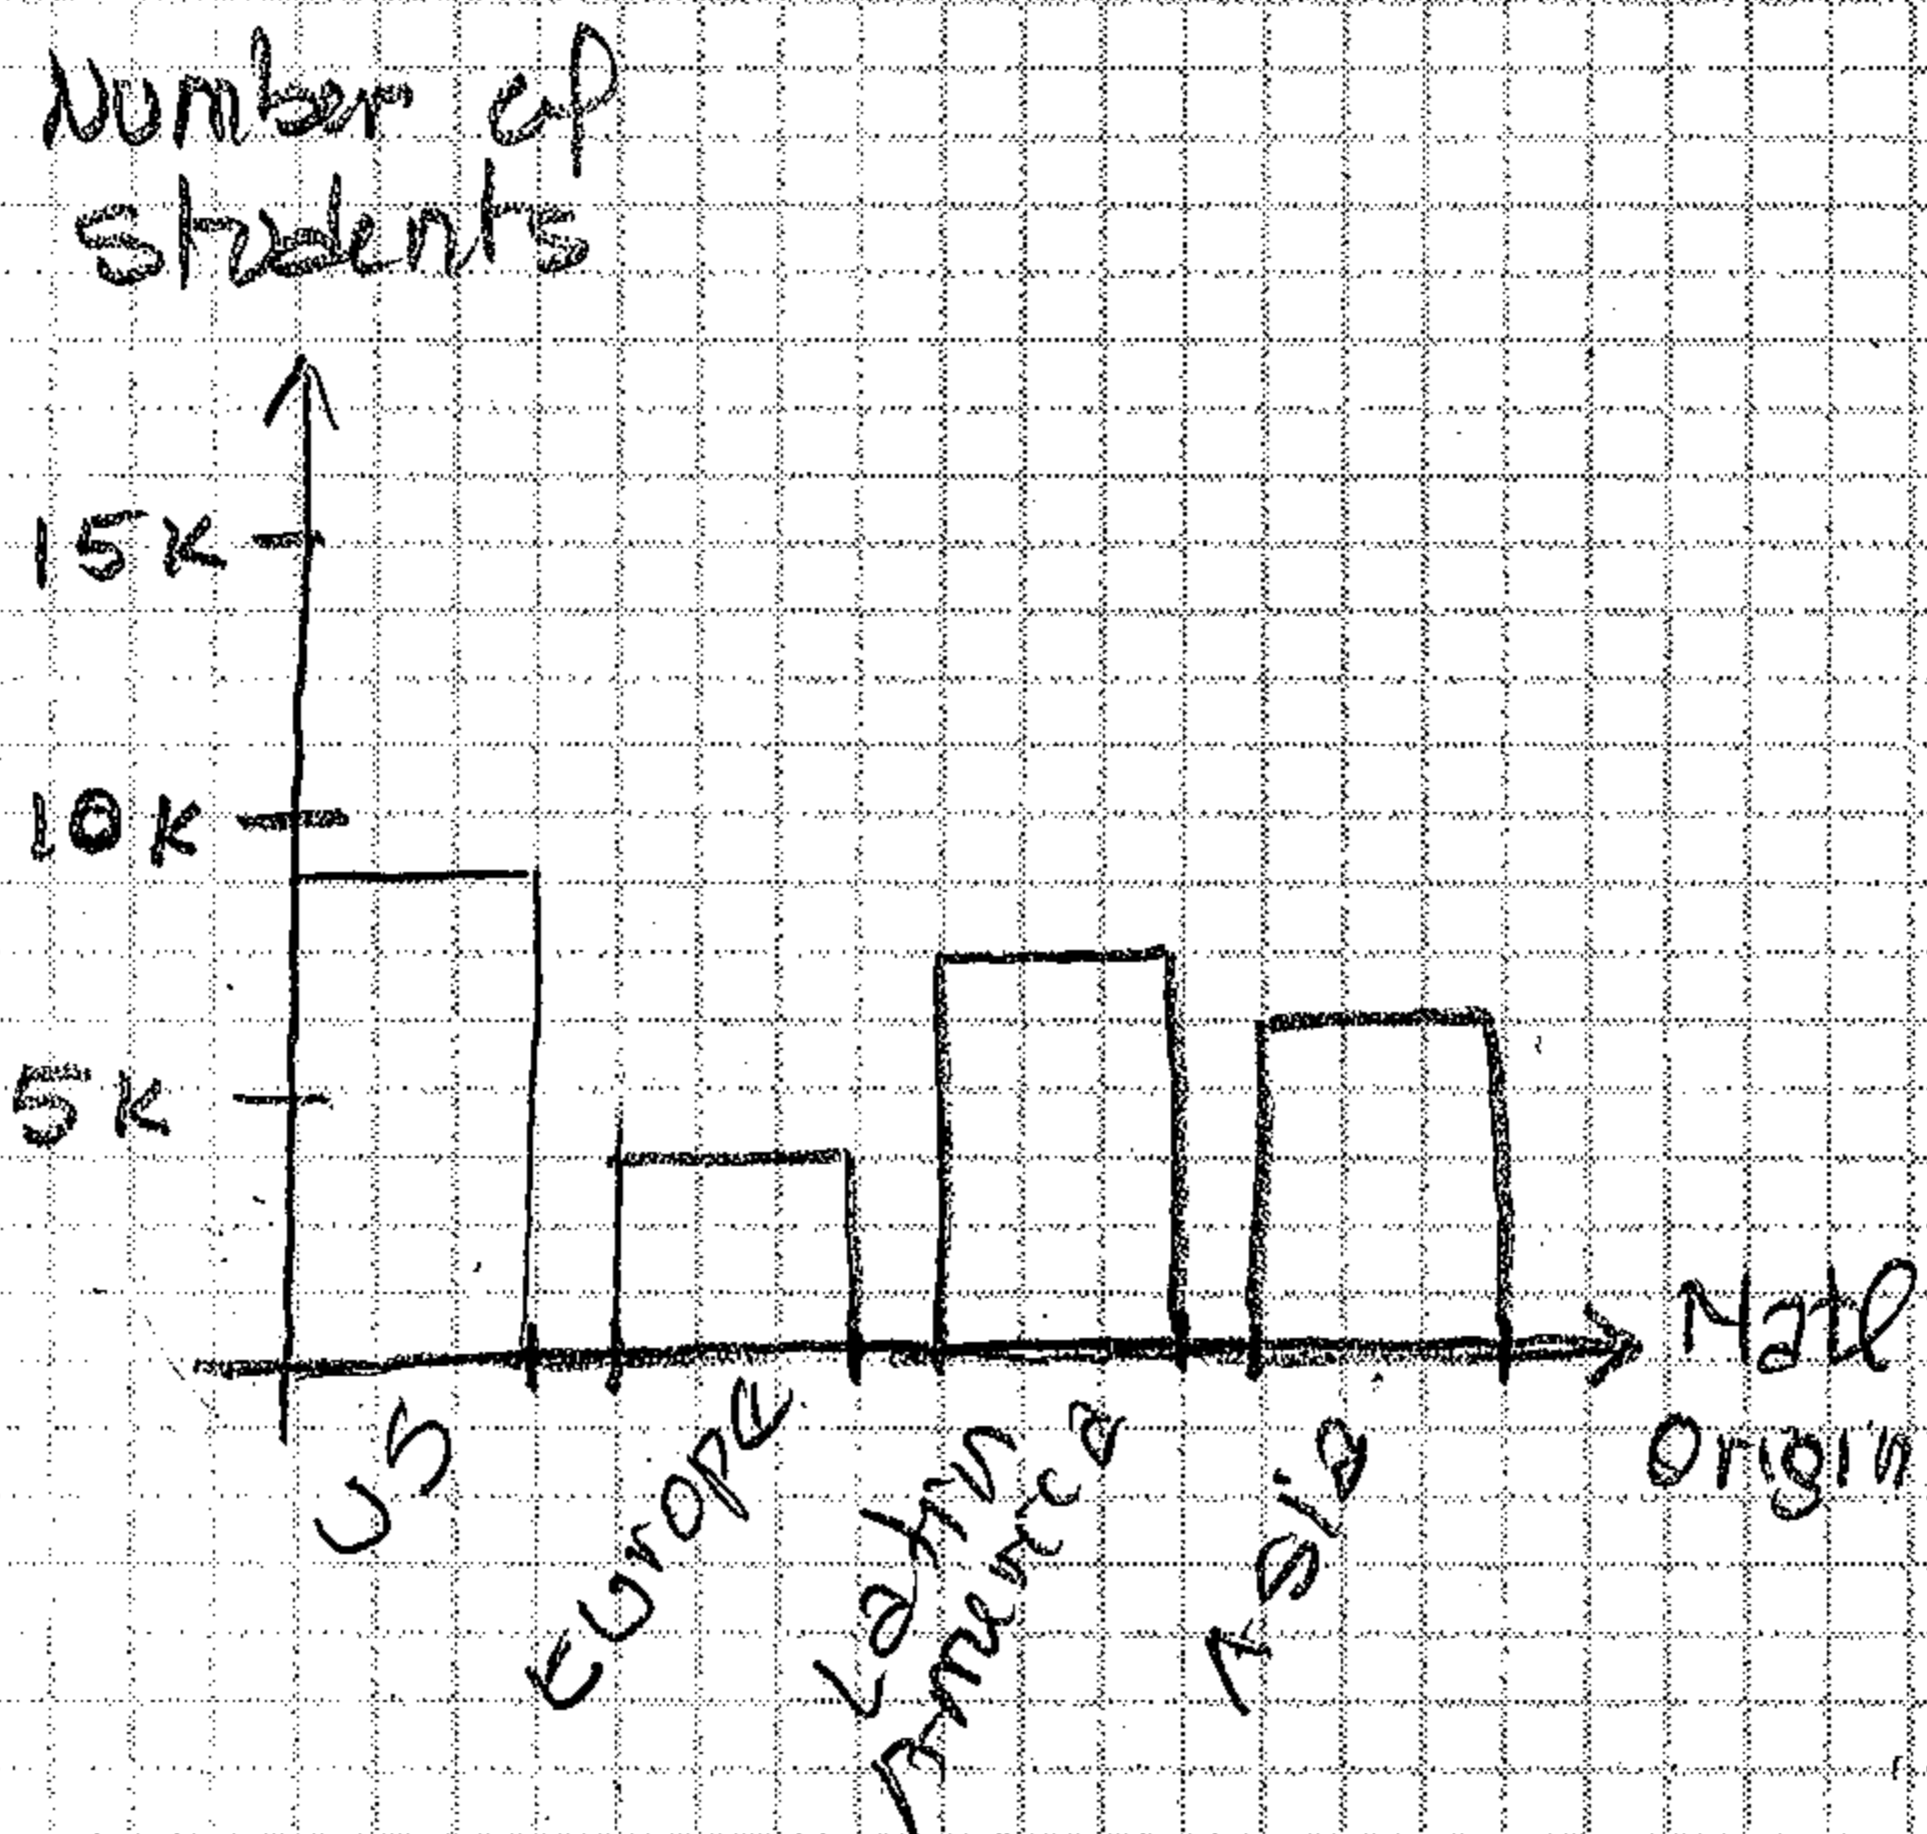 Number of
students
15K
10K
5K
US
Europe
Latin
America
Asia
Natl
Origin